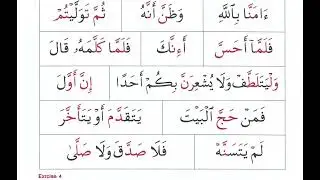 ءَامَنَّا بِٱللَّهِ وَظَنَّ أَنَّهُ ثُمَّ تَوَلَّيْتُمْ
فَلَمَّا أَحَسَّ أَءِنَّكَ فَلَمَّا كَلَّمَهُۥ قَالَ
وَلْيَتَلَطَّفْ وَلَا يُشْعِرَنَّ بِكُمْ أَحَدًا إِنَّ أَوَّلَ
فَمَنْ حَجَّ ٱلْبَيْتَ يَتَقَدَّمَ أَوْ يَتَأَخَّرَ
لَمْ يَتَسَنَّهْ فَلَا صَدَّقَ وَلَا صَلَّىٰ
Exercise 4